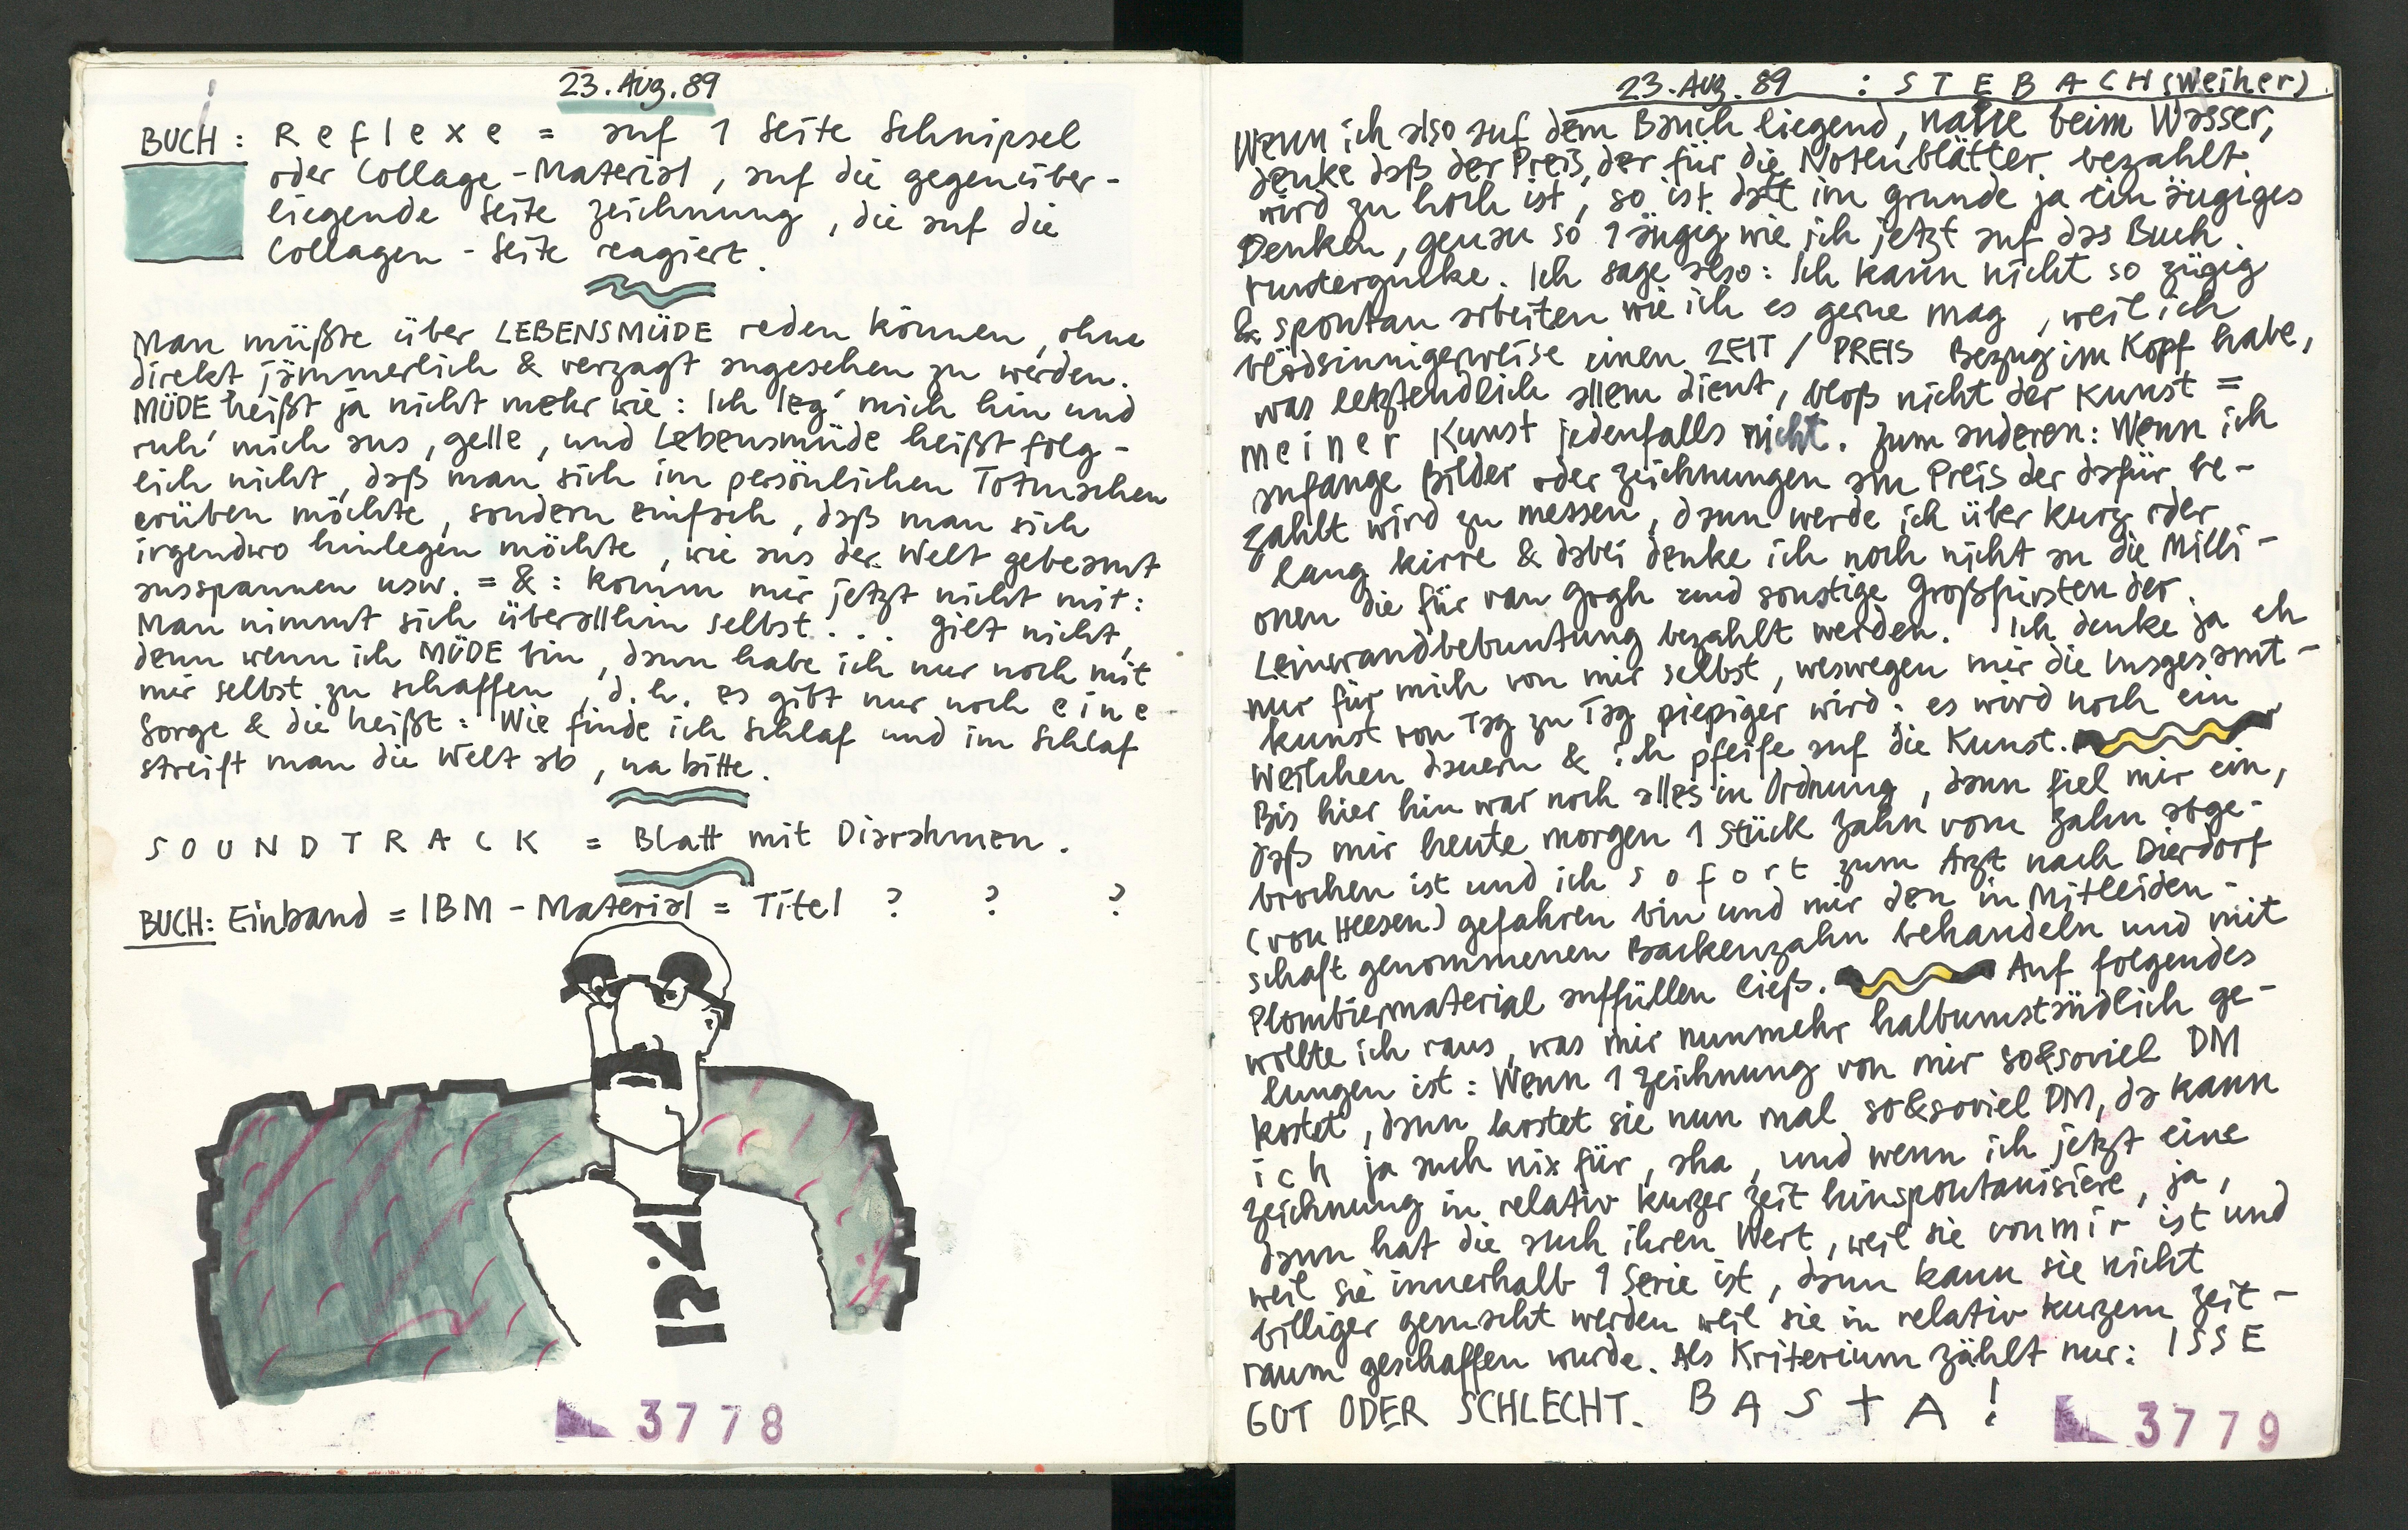 23. Aug. 89
BUCH: Reflexe = auf 1 Seite Schnipsel
oder Collage-Material, auf die gegenüber-
liegende Seite Zeichnung, die auf die
Collagen-Seite reagiert.
Man müßte über LEBENSMÜDE reden können, ohne
direkt jämmerlich & verzagt angesehen zu werden.
MÜDE heißt ja nicht mehr wie: Ich leg' mich hin und
ruh' mich aus, gelle, und Lebensmüde heißt folg-
lich nicht, daß man sich im persönlichen Totmachen
erüben möchte, sondern einfach, daß man sich
irgendwo hinlegen möchte, wie aus der Welt gebeamt
ausspannen usw. = & : komm mir jetzt nicht mit:
Man nimmt sich überallhin selbst... gilt nicht,
denn wenn ich MÜDE bin, dann habe ich nur noch mit
mir selbst zu schaffen, d.h. es gibt nur noch eine
Sorge & die heißt: Wie finde ich Schlaf und im Schlaf
streift man die Welt ab, na bitte.
SOUNDTRACK = Blatt mit Diarahmen.
BUCH: Einband = IBM-Material = Titel ? ? ?
3778
23. Aug. 89 : STEBACH (Weiher)
Wenn ich also auf dem Bauch liegend, nahe beim Wasser,
denke daß der Preis, der für die Notenblätter bezahlt
wird zu hoch ist, so ist datt im grunde ja ein äugiges
Denken, genau so 1 äugig wie ich jetzt auf das Buch
runtergucke. Ich sage also: Ich kann nicht so zügig
& spontan arbeiten wie ich es gerne mag, weil ich
blödsinnigerweise einen ZEIT / PREIS Bezug im Kopf habe,
was letztendlich allem dient, bloß nicht der Kunst =
meiner Kunst jedenfalls nicht. Zum anderen: Wenn ich
anfange Bilder oder Zeichnungen am Preis der dafür be-
zahlt wird zu messen, dann werde ich über kurz oder
lang kirre & dabei denke ich noch nicht an die Milli-
onen die für van Gogh und sonstige Großfürsten der
Leinwandbebuntung bezahlt werden. Ich denke ja eh
nur für mich von mir selbst, weswegen mir die Insgesamt-
kunst von Tag zu Tag piepiger wird: es wird noch ein
Weilchen dauern & ich pfeife auf die Kunst.
Bis hier hin war noch alles in Ordnung, dann fiel mir ein,
daß mir heute morgen 1 Stück Zahn vom Zahn abge-
brochen ist und ich sofort zum Arzt nach Dierdorf
(von Heesen) gefahren bin und mir den in Mitleiden-
schaft genommenen Backenzahn behandeln und mit
Plombiermaterial auffüllen ließ. Auf folgendes
wollte ich raus, was mir nunmehr halbumständlich ge-
lungen ist: Wenn 1 Zeichnung von mir so&soviel DM
kostet, dann kostet sie nun mal so&soviel DM, da kann
ich ja auch nix für, aha, und wenn ich jetzt eine
Zeichnung in relativ kurzer Zeit hinspontanisiere, ja,
dann hat die auch ihren Wert, weil sie von mir ist und
weil sie innerhalb 1 Serie ist, dann kann sie nicht
billiger gemacht werden weil sie in relativ kurzem Zeit-
raum geschaffen wurde. Als Kriterium zählt nur: ISSE
GUT ODER SCHLECHT. BASTA!
3779